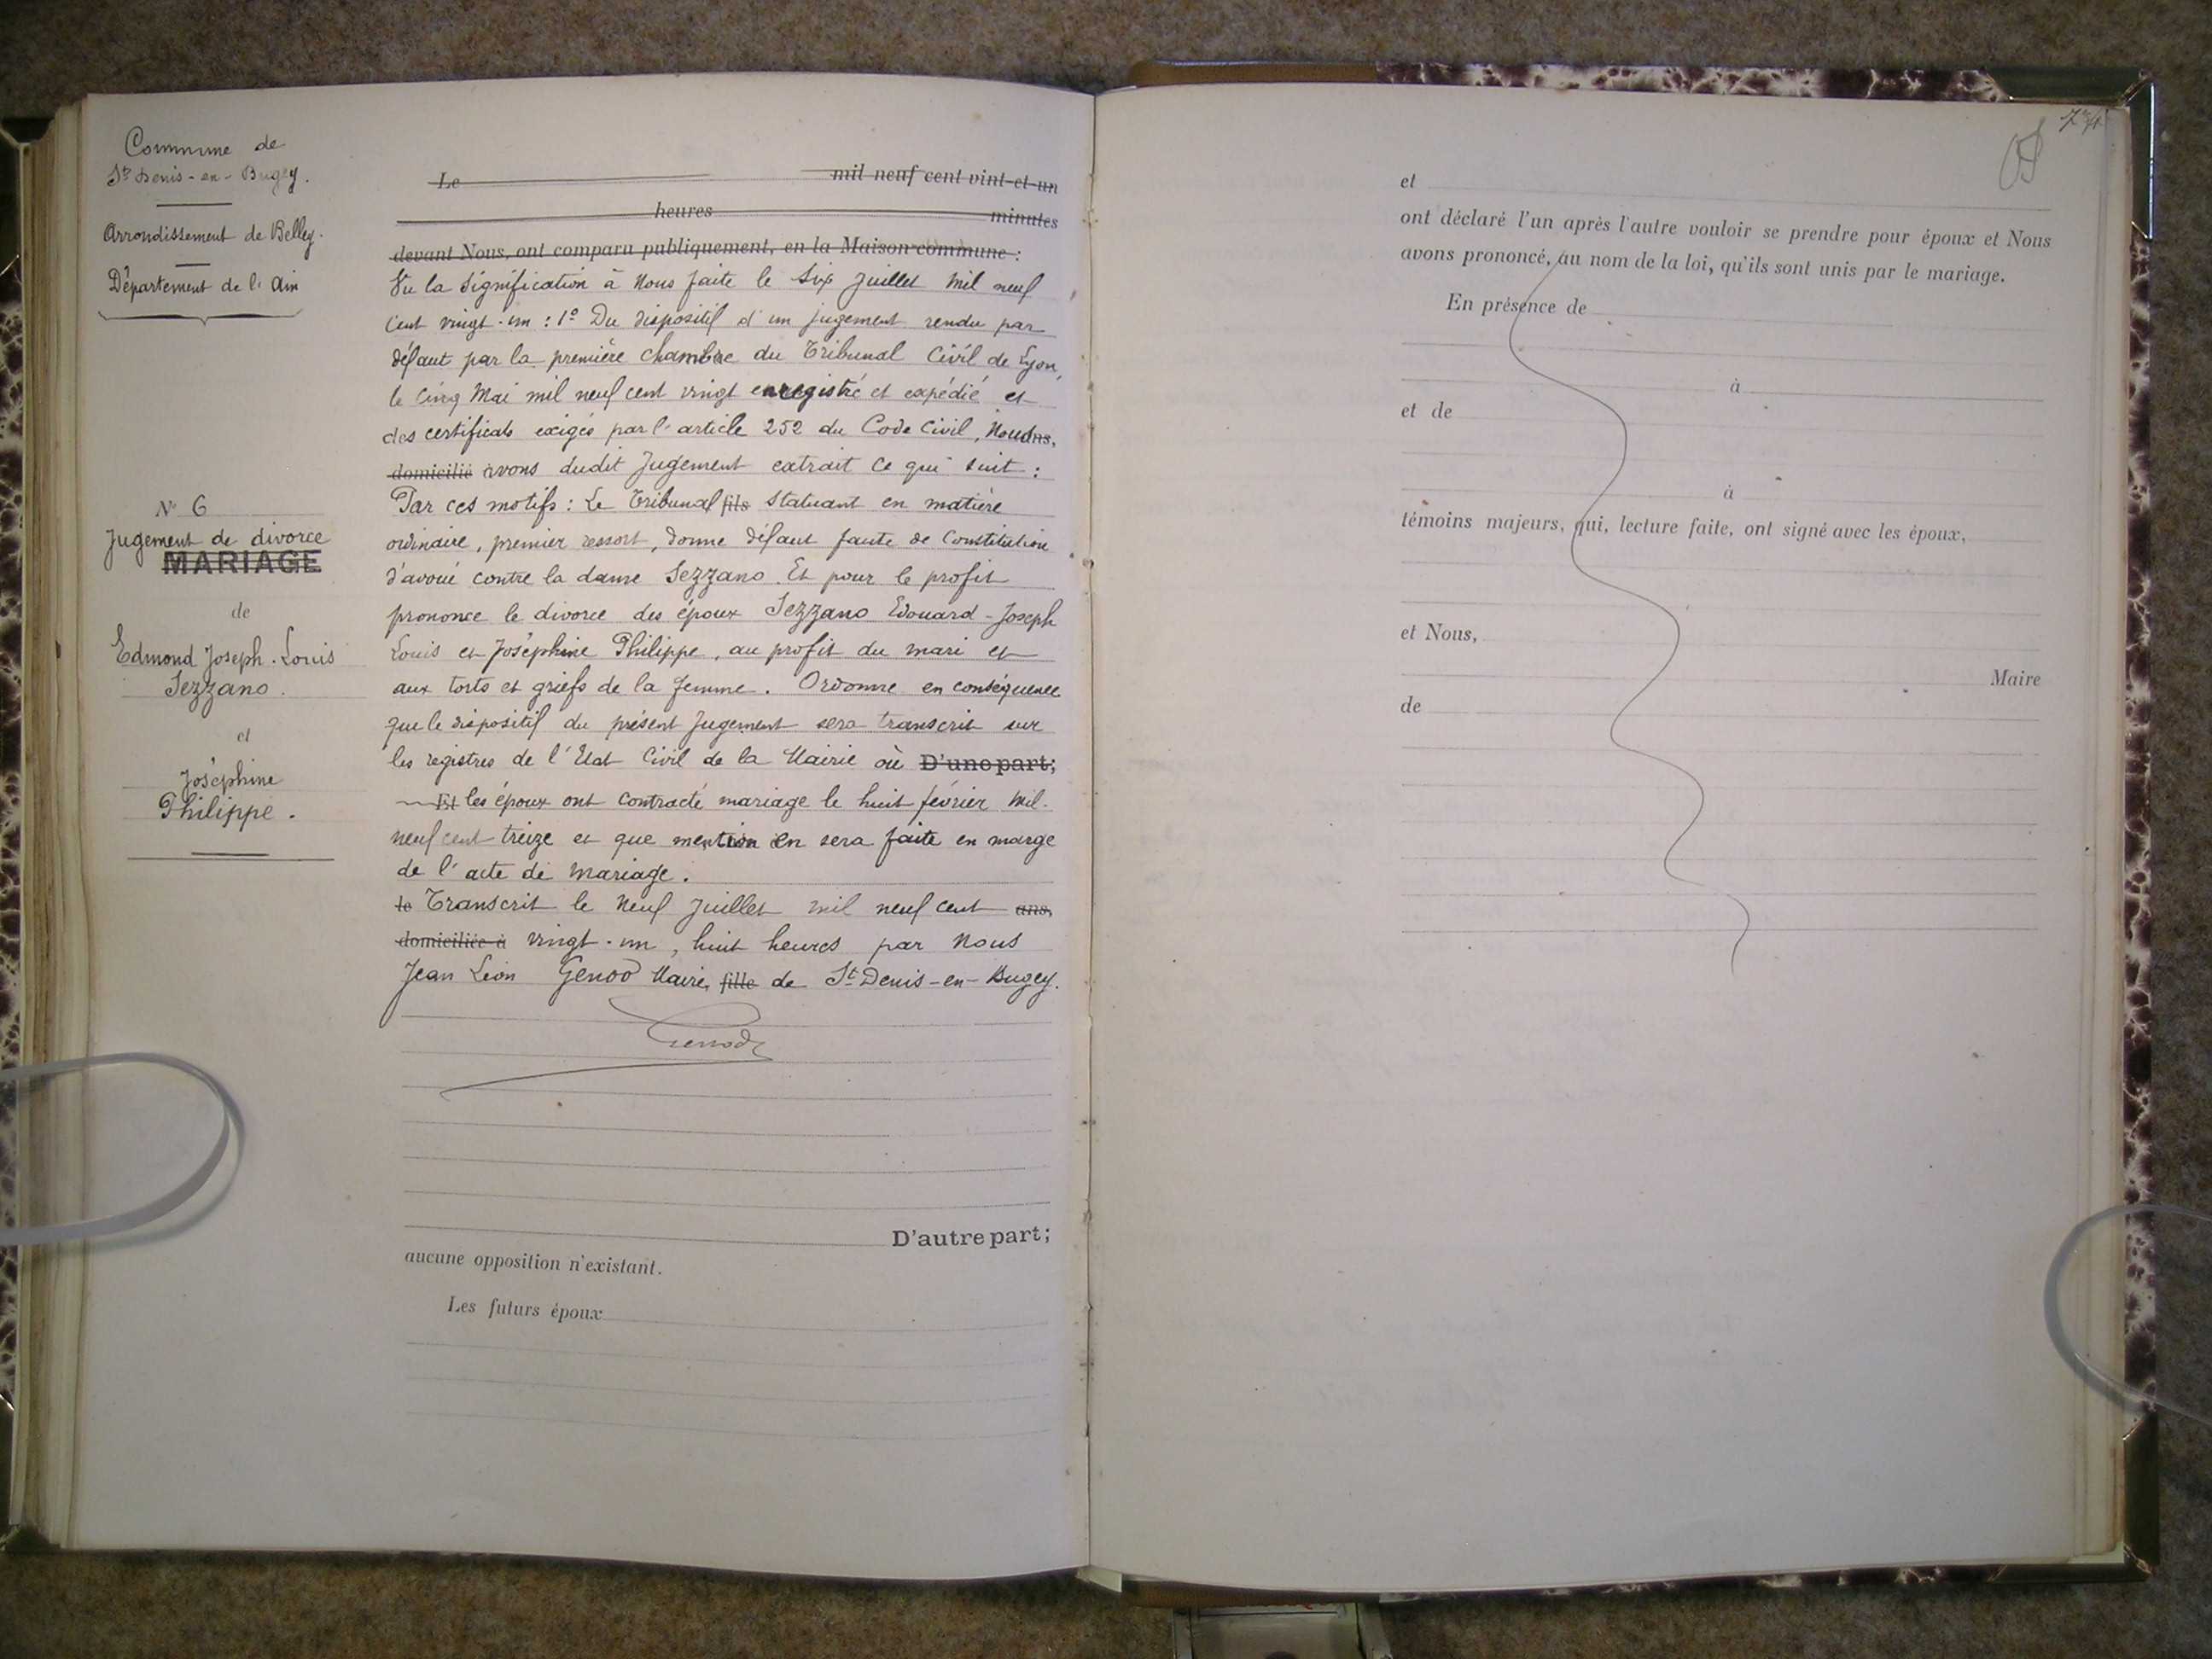 Commune de
St Denis-en-Bugey.
Arrondissement de Belley.
Département de l'Ain
N° 6
Jugement de divorce
MARIAGE
de
Edmond Joseph. Louis
Sezzano.
et
Joséphine
Philippe.
Le mil neuf cent vint-et-un
heures minutes
devant Nous, ont comparu publiquement, en la Maison commune :
Vu la signification à Nous faite le six Juillet mil neuf
cent vingt-un : 1° Du dispositif d'un jugement rendu par
défaut par la première chambre du Tribunal Civil de Lyon,
le cinq Mai mil neuf cent vingt enregistré et expédié et
des certificats exigés par l'article 252 du Code Civil, Nous ans,
domicilié avons dudit Jugement extrait ce qui suit :
Par ces motifs : Le Tribunal fils statuant en matière
ordinaire, premier ressort, donne défaut faute de Constitution
d'avoué contre la dame Sezzano. Et pour le profit
prononce le divorce des époux Sezzano Edouard-Joseph
Louis et Joséphine Philippe, au profit du mari et
aux torts et griefs de la femme. Ordonne en conséquence
que le dispositif du présent Jugement sera transcrit sur
les registres de l'Etat Civil de la Mairie où D'une part;
Et les époux ont contracté mariage le huit février mil-
neuf cent treize et que mention en sera faite en marge
de l'acte de mariage.
le Transcrit le neuf Juillet mil neuf cent ans,
domiciliée à vingt-un, huit heures par Nous
Jean Léon Genod Maire, fille de St Denis-en-Bugey.
Genod
D'autre part;
aucune opposition n'existant.
Les futurs époux
et
ont déclaré l'un après l'autre vouloir se prendre pour époux et Nous
avons prononcé, au nom de la loi, qu'ils sont unis par le mariage.
En présence de
à
et de
à
témoins majeurs, qui, lecture faite, ont signé avec les époux,
et Nous,
Maire
de